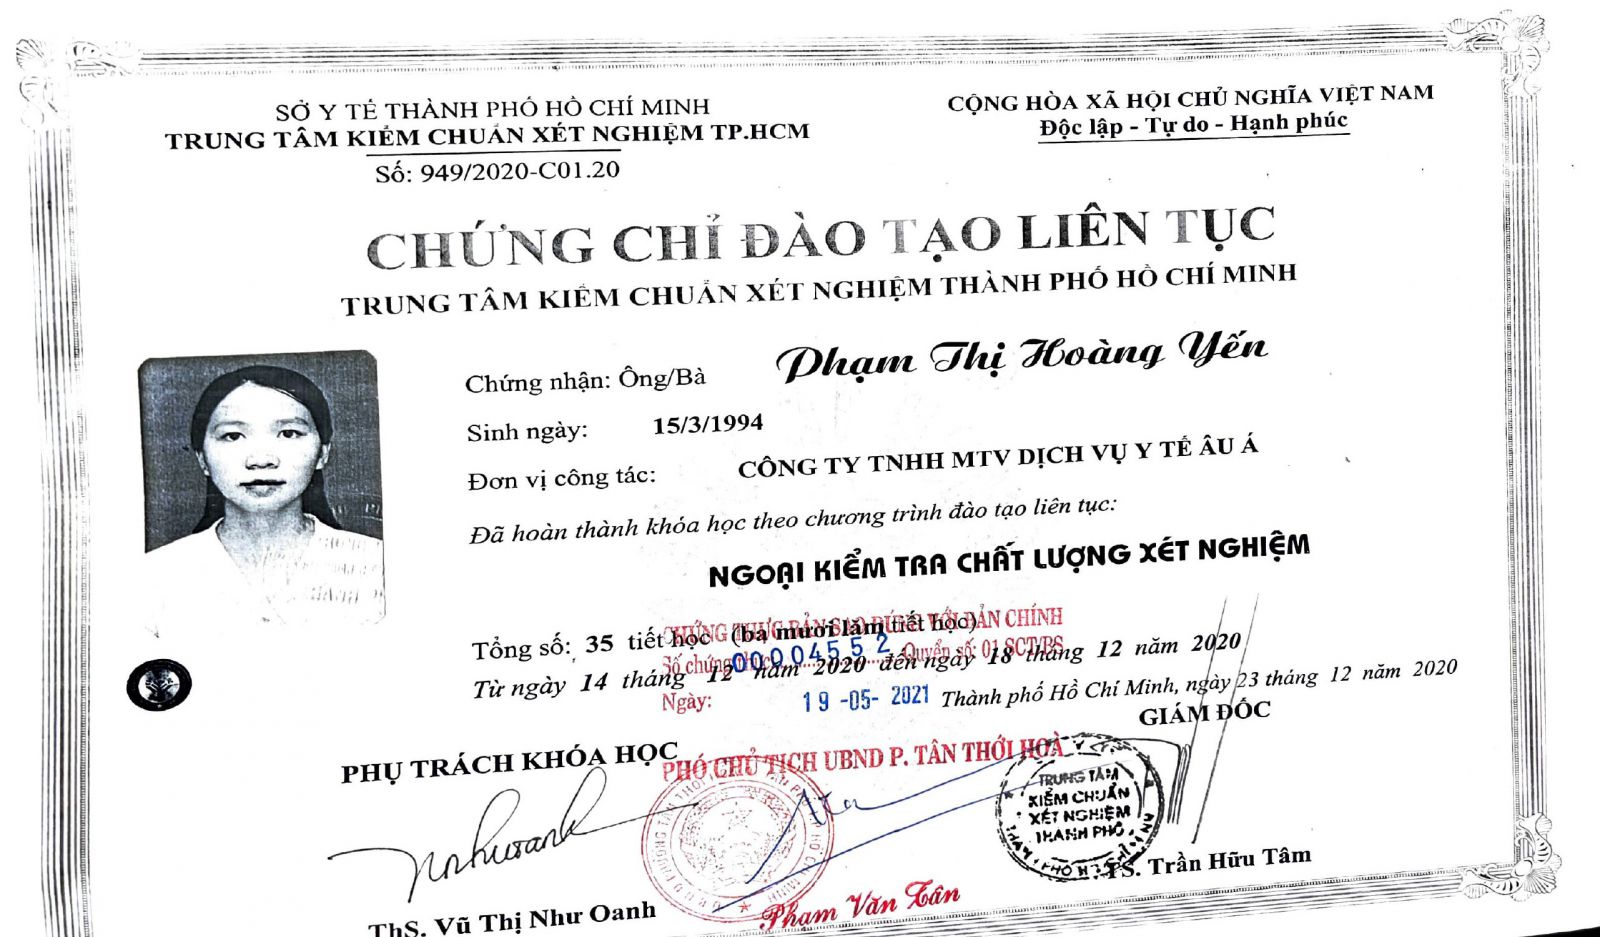 SỞ Y TẾ THÀNH PHỐ HỒ CHÍ MINH
TRUNG TÂM KIỂM CHUẨN XÉT NGHIỆM TP.HCM
Số: 949/2020-C01.20
CỘNG HÒA XÃ HỘI CHỦ NGHĨA VIỆT NAM
Độc lập - Tự do - Hạnh phúc
CHỨNG CHỈ ĐÀO TẠO LIÊN TỤC
TRUNG TÂM KIỂM CHUẨN XÉT NGHIỆM THÀNH PHỐ HỒ CHÍ MINH
Chứng nhận: Ông/Bà Phạm Thị Hoàng Yến
Sinh ngày: 15/3/1994
Đơn vị công tác: CÔNG TY TNHH MTV DỊCH VỤ Y TẾ ÂU Á
Đã hoàn thành khóa học theo chương trình đào tạo liên tục:
NGOẠI KIỂM TRA CHẤT LƯỢNG XÉT NGHIỆM
CHỨNG THỰC BẢN SAO ĐÚNG VỚI BẢN CHÍNH
Tổng số: 35 tiết học (ba mươi lăm tiết học)
Số chứng thực 00004552 Quyển số: 01 SCT/BS
Từ ngày 14 tháng 12 năm 2020 đến ngày 18 tháng 12 năm 2020
Ngày: 19-05-2021
Thành phố Hồ Chí Minh, ngày 23 tháng 12 năm 2020
GIÁM ĐỐC
PHỤ TRÁCH KHÓA HỌC
PHÓ CHỦ TỊCH UBND P. TÂN THỚI HOÀ
TRUNG TÂM
KIỂM CHUẨN
XÉT NGHIỆM
THÀNH PHỐ
TS. Trần Hữu Tâm
Phạm Văn Tân
ThS. Vũ Thị Như Oanh